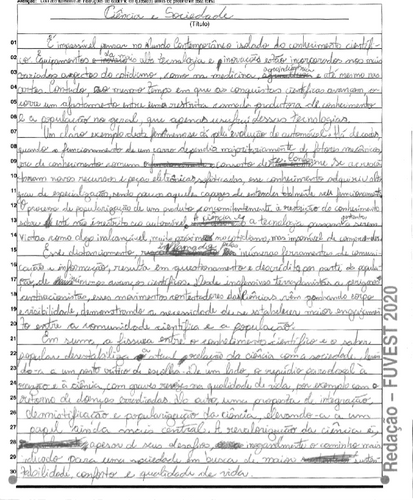 Ciência e Sociedade
(Título)
É impensável pensar no Mundo Contemporâneo isolado do conhecimento científi-
co. Equipamentos de alta tecnologia e inovação estão incorporados nos mais
variados aspectos do cotidiano, como na medicina, e até mesmo nas
artes. Contudo, ao mesmo tempo em que as conquistas científicas avançam, o-
corre um afastamento entre uma restrita camada produtora de conhecimento
e a população no geral, que apenas usufrui dessas tecnologias.
Um claro exemplo deste fenômeno se dá pela evolução do automóvel. Há décadas,
quando o funcionamento de um carro dependia majoritariamente de fatores mecânicos,
era de conhecimento comum o conserto
foram novos recursos e peças eletrônicas sofisticadas, esse conhecimento adquiriu
de especialização, sendo poucos aqueles capazes de entender totalmente seu funcionamento.
O processo de popularização de um produto concomitantemente à restrição do conhecimento
sobre ele não é restrito ao automóvel, a ciência e a tecnologia passam a serem
vistas como algo inalcançável, muito no cotidiano, mas impossível de compreender.
Esse distanciamento, inúmeras ferramentas de comuni-
cação e informação, resulta em questionamento e descrédito por parte da popula-
ção, de inúmeros avanços científicos. Desde inofensivos terraplanistas a perigosos
antivacionistas, esses movimentos contestadores da Ciência vêm ganhando corpo
e visibilidade, demonstrando a necessidade de se estabelecer maior engajamen-
to entre a comunidade científica e a população.
Em suma, a fissura entre o conhecimento científico e o saber
popular desestabiliza a atual relação da ciência com a sociedade, levan-
do-a a um ponto crítico de escolha. De um lado, o repúdio paradoxal à
inovação e à ciência, com graves reveses na qualidade de vida, por exemplo com o
retorno de doenças erradicadas. Do outro, uma proposta de integração,
desmistificação e popularização da ciência, elevando-a a um
papel ainda mais central. A revalorização da ciência é,
apesar de seus desafios, inegavelmente o caminho mais
indicado para uma sociedade em busca de maior
estabilidade, conforto e qualidade de vida.
Redação – FUVEST 2020